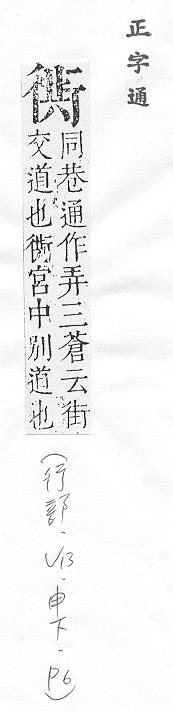 正字通
衖
同巷通作弄三蒼云街
交道也衖宮中別道也
(行部.V13.申下.P6)